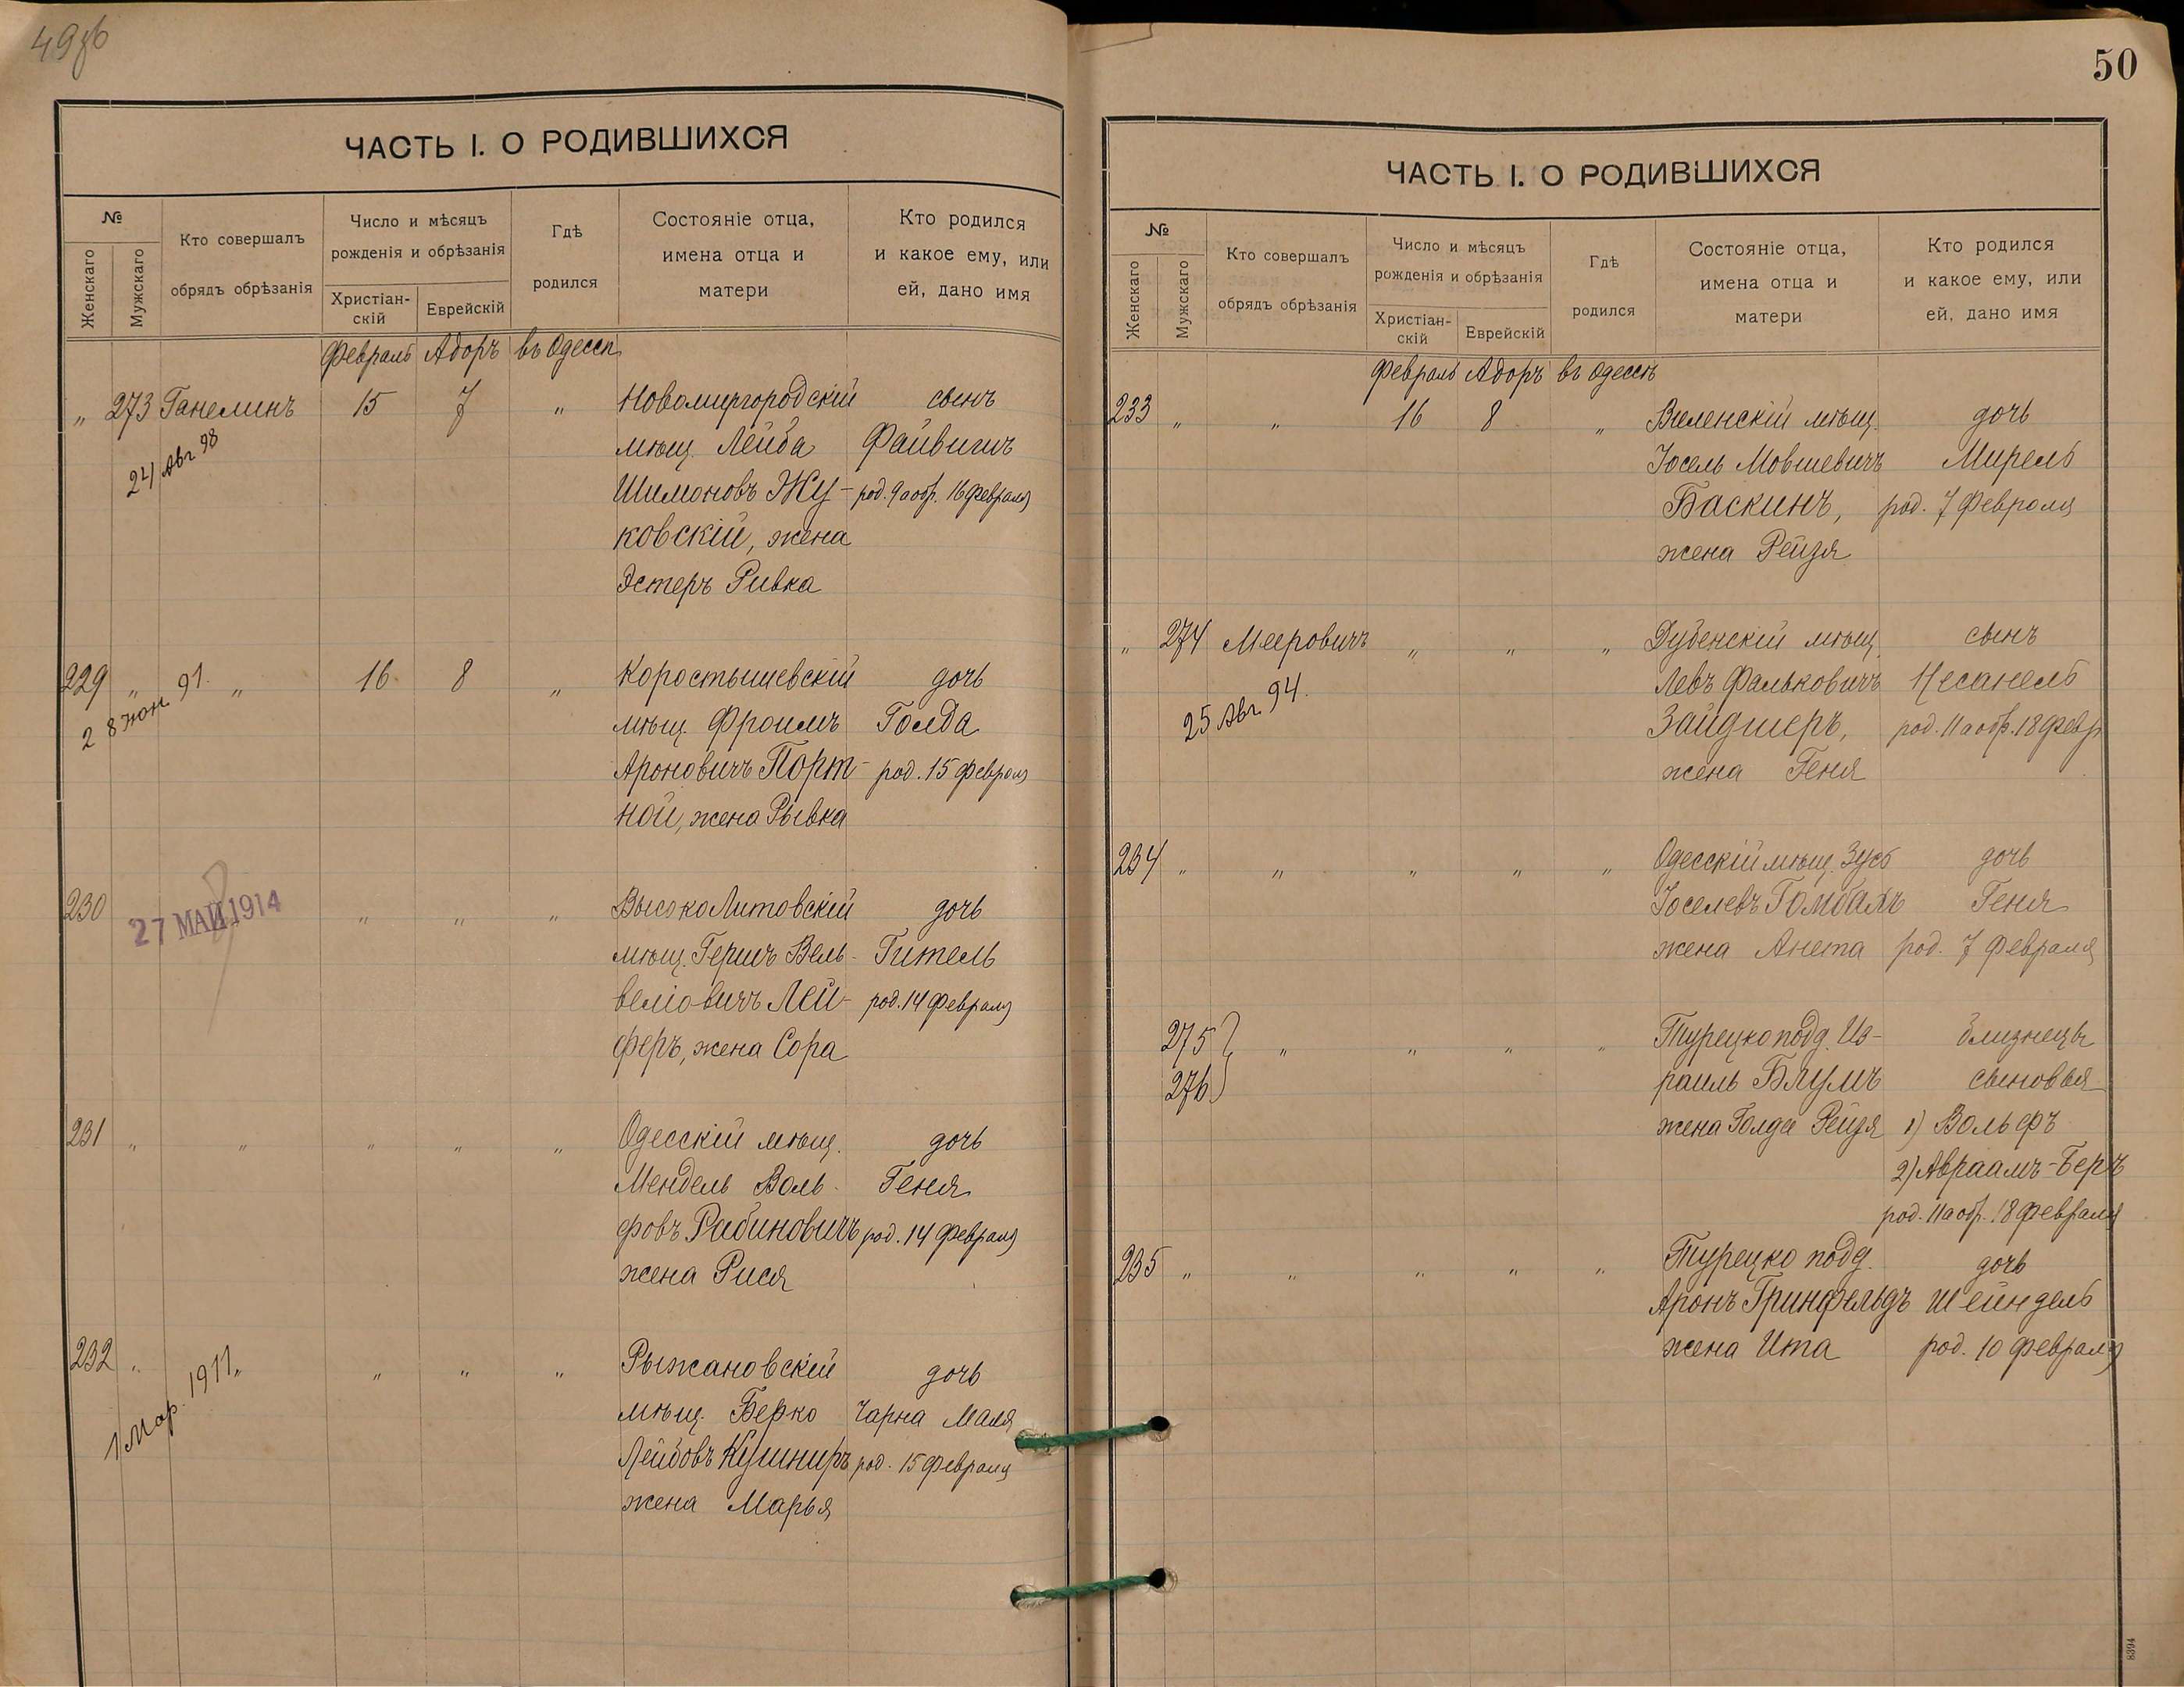 49об
ЧАСТЬ I. О РОДИВШИХСЯ
№
Женскаго
Мужскаго
Кто совершалъ
обрядъ обрѣзанія
Число и мѣсяцъ
рожденія и обрѣзанія
Христіан-
скій
Еврейскій
Гдѣ
родился
Состояніе отца,
имена отца и
матери
Кто родился
и какое ему, или
ей, дано имя
Февраль Адоръ въ Одессѣ
" 273 Ганелинъ 15 7 " Новомиргородскій сынъ
24 Авг 98
мѣщ. Лейба Файвишъ
Шимоновъ Жу- род. 9 а обр. 16 февраля
ковскій, жена
Эстеръ Ривка
229 " " 16 8 " Коростышевскій дочь
28 Июн 91.
мѣщ. Фроимъ Голда
Ароновичъ Порт- род. 15 февраля
ной, жена Рывка
230 " " " ВысокоЛитовскій дочь
27 МАЙ 1914
мѣщ. Гершъ Вель- Гитель
веліовичъ Лей- род. 14 февраля
феръ, жена Сора
231 " " " " " Одесскій мѣщ. дочь
Мендель Воль- Геня
фовъ Рабиновичъ род. 14 февраля
жена Рися
232 " " " " " Рыжановскій дочь
1 Мар. 1911
мѣщ. Берко Чарна Маля
Лейбовъ Кушниръ род. 15 февраля
жена Марья
50
ЧАСТЬ I. О РОДИВШИХСЯ
№
Женскаго
Мужскаго
Кто совершалъ
обрядъ обрѣзанія
Число и мѣсяцъ
рожденія и обрѣзанія
Христіан-
скій
Еврейскій
Гдѣ
родился
Состояніе отца,
имена отца и
матери
Кто родился
и какое ему, или
ей, дано имя
Февраль Адоръ въ Одессѣ
233 " " 16 8 " Виленскій мѣщ. дочь
Іосель Мовшевичъ Мирель
Баскинъ, род. 7 Февраля
жена Рейзя
" 274 Мееровичъ " " " Дубенскій мѣщ. сынъ
25 Авг 94.
Левъ Фальковичъ Несанель
Зайдшеръ, род. 11 а обр. 18 февр
жена Геня
234 " " " " " Одесскій мѣщ. Зусь дочь
Іоселевъ Гомбахъ Геня
жена Анета род. 7 февраля
275 " " " " Турецкоподд. Из- близнецы
276 раиль Блумъ сыновья
жена Голда Рейзя 1) Вольфъ
2) Авраамъ-Беръ
род. 11 а обр. 18 февраля
235 " " " " " Турецко подд. дочь
Аронъ Гринфельдъ Шейндель
жена Ита род. 10 февраля
8394